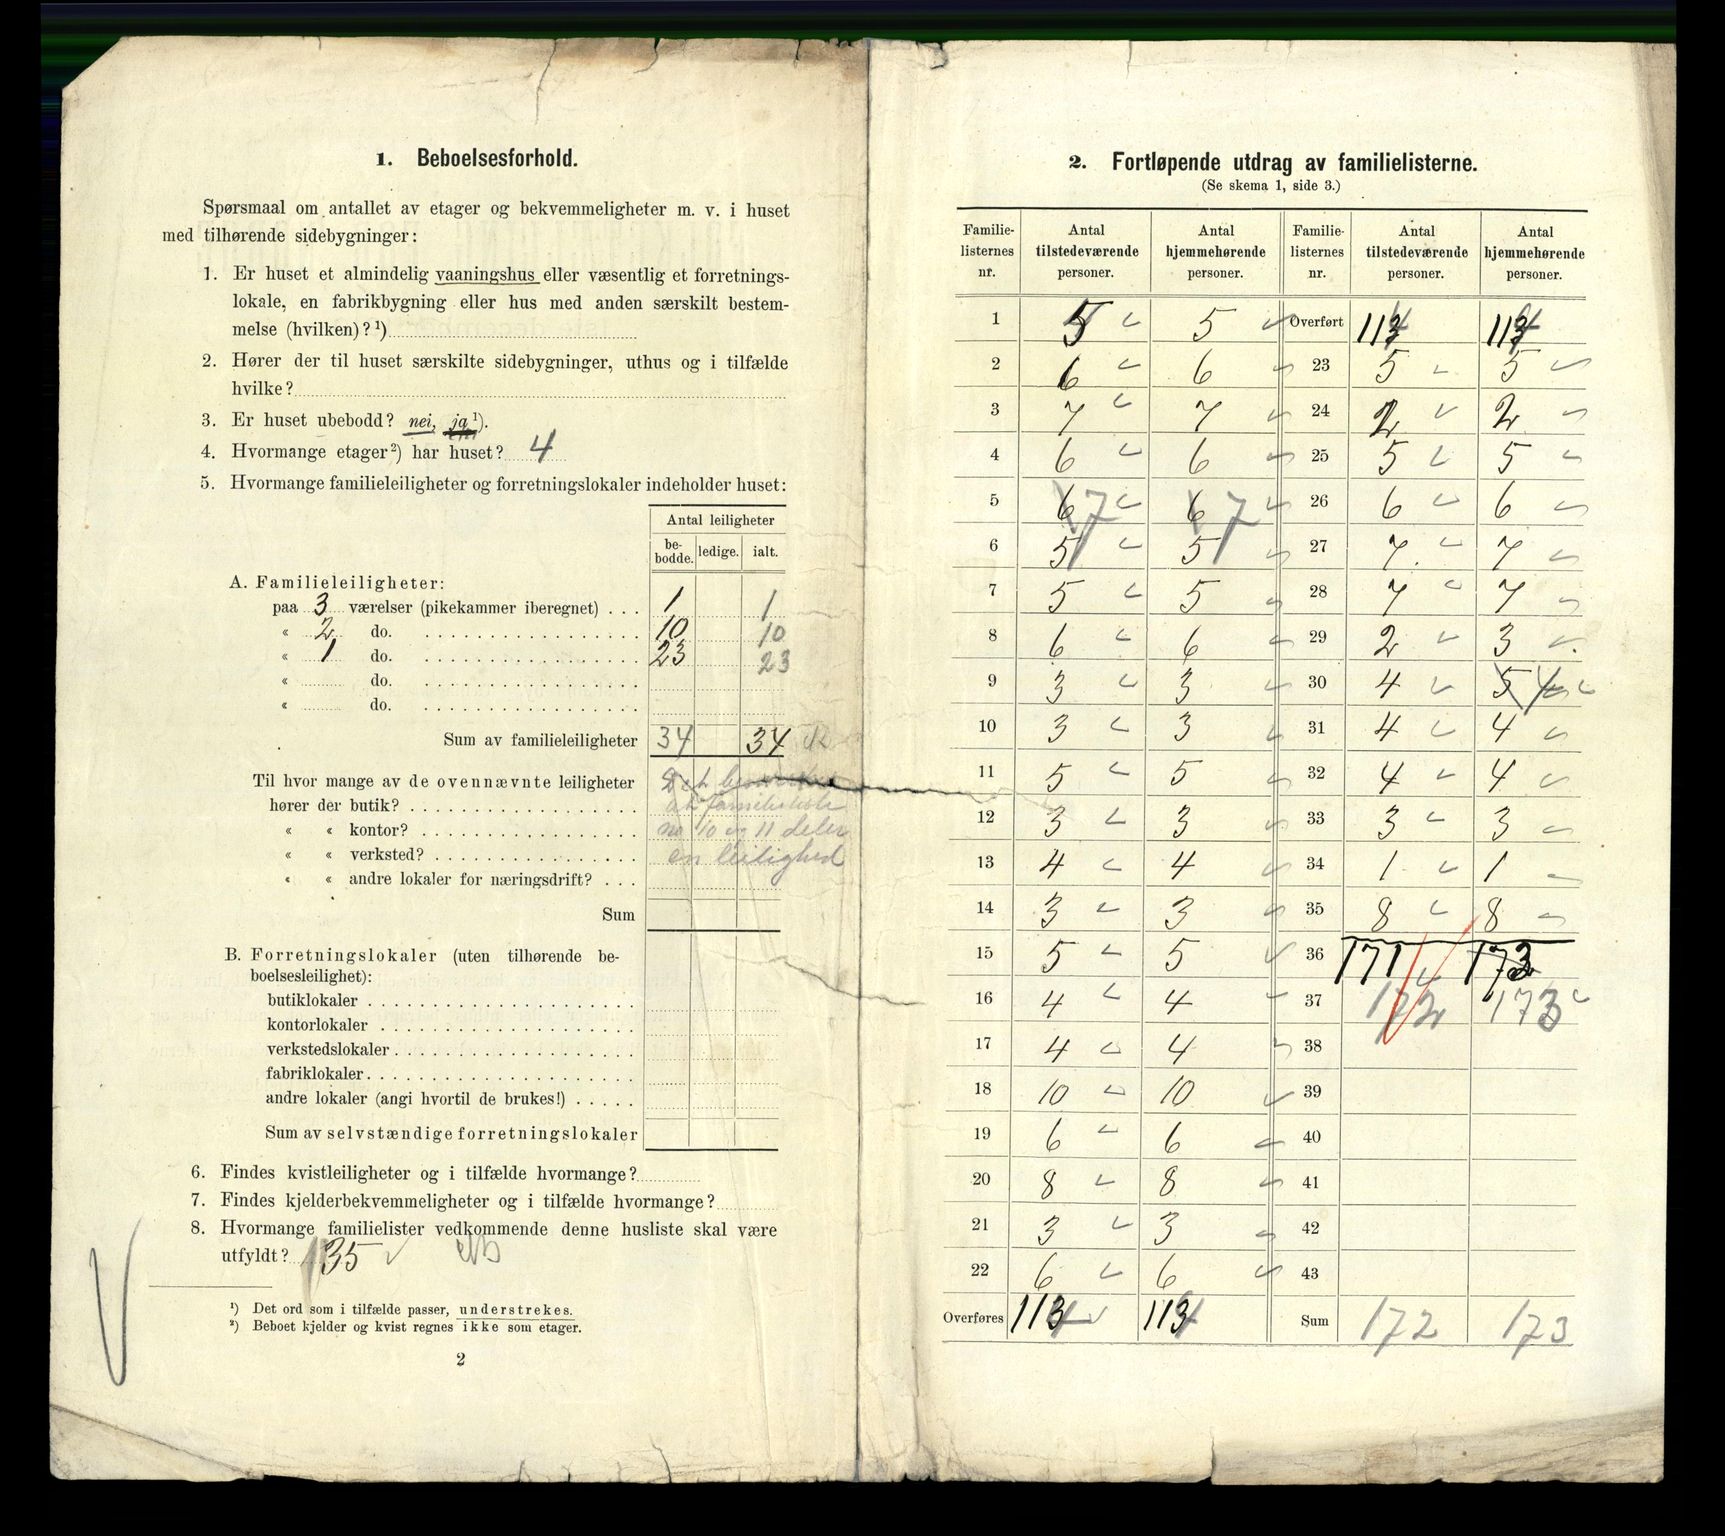 1. Beboelsesforhold.
Spørsmaal om antallet av etager og bekvemmeligheter m. v. i huset
med tilhørende sidebygninger:
1. Er huset et almindelig vaaningshus eller væsentlig et forretnings-
lokale, en fabrikbygning eller hus med anden særskilt bestem-
melse (hvilken)? ¹)
2. Hører der til huset særskilte sidebygninger, uthus og i tilfælde
hvilke?
3. Er huset ubebodd? nei, ja ¹).
4. Hvormange etager ²) har huset? 4
5. Hvormange familieleiligheter og forretningslokaler indeholder huset:
Antal leiligheter
be-
bodde. ledige. ialt.
A. Familieleiligheter:
paa 3 værelser (pikekammer iberegnet) . . . 1 1
« 2 do. 10 10
« 1 do. 23 23
« do.
« do.
Sum av familieleiligheter 34 34
Til hvor mange av de ovennævnte leiligheter
hører der butik?
« « kontor?
« « verksted?
« « andre lokaler for næringsdrift? . . .
at familieliste
no 10 og 11 deler
en leilighed
Sum
B. Forretningslokaler (uten tilhørende be-
boelsesleilighet):
butiklokaler
kontorlokaler
verkstedslokaler
fabriklokaler
andre lokaler (angi hvortil de brukes!)
Sum av selvstændige forretningslokaler
6. Findes kvistleiligheter og i tilfælde hvormange?
7. Findes kjelderbekvemmeligheter og i tilfælde hvormange?
8. Hvormange familielister vedkommende denne husliste skal være
utfyldt? 35
¹) Det ord som i tilfælde passer, understrekes.
²) Beboet kjelder og kvist regnes ikke som etager.
2
2. Fortløpende utdrag av familielisterne.
(Se skema 1, side 3.)
Familie- listernes nr. Antal tilstedeværende personer. Antal hjemmehørende personer. Familie- listernes nr. Antal tilstedeværende personer. Antal hjemmehørende personer.
1 5 5 Overført 114 114
2 6 6 23 5 5
3 7 7 24 2 2
4 6 6 25 5 5
5 6 7 6 7 26 6 6
6 5 5 27 7 7
7 5 5 28 7 7
8 6 6 29 2 3
9 3 3 30 4 5 4
10 3 3 31 4 4
11 5 5 32 4 4
12 3 3 33 3 3
13 4 4 34 1 1
14 3 3 35 8 8
15 5 5 36 171 173
16 4 4 37 172 173
17 4 4 38
18 10 10 39
19 6 6 40
20 8 8 41
21 3 3 42
22 6 6 43
Overføres 114 114 Sum 172 173